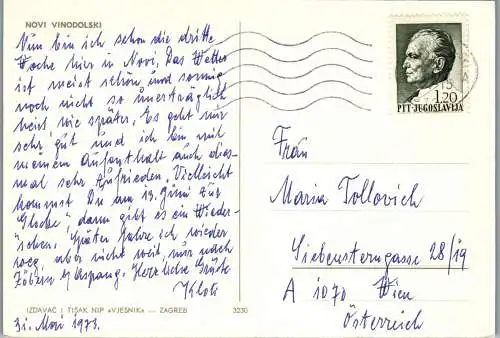 NOVI VINODOLSKI
Nun bin ich schon die dritte
Woche hier in Novi. Das Wetter
ist meist schön und sonnig
noch nicht so unerträglich
heiß wie später. Es geht mir
sehr gut und ich bin mit
meinem Aufenthalt auch dies-
mal sehr zufrieden. Vielleicht
kommst Du am 13. Juni zur
"Glocke", dann gibt es ein Wieder-
sehen. Später fahre ich wieder
weg, aber nicht weit, nur nach
Zöbern b/ Aspang. Herzliche Grüße
IZDAVAČ I TISAK NIP «VJESNIK» — ZAGREB 3230
31. Mai 1973.
1.20
PTT-JUGOSLAVIJA
Frau
Maria Tollovich
Siebensterngasse 28/19
A 1070 Wien
Österreich